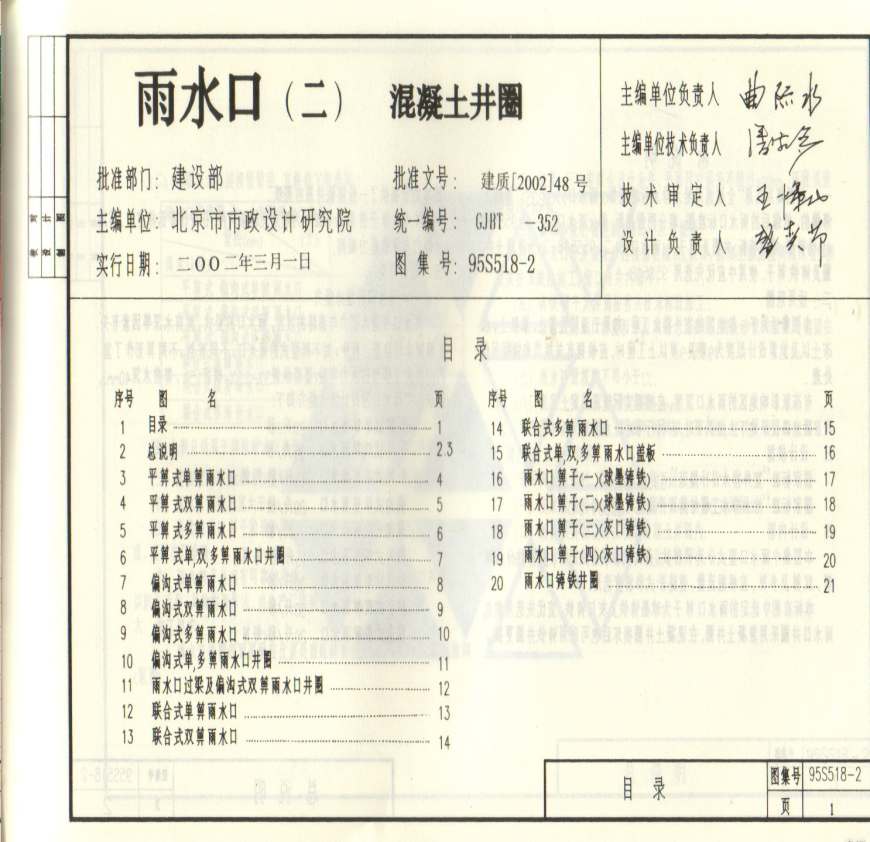 雨水口（二） 混凝土井圈
批准部门：建设部 批准文号：建质[2002]48号
主编单位：北京市市政设计研究院 统一编号：GJBT －352
实行日期：二〇〇二年三月一日 图集号：95S518-2
主编单位负责人
主编单位技术负责人
技术审定人
设计负责人
目录
序号 图名 页
1 目录 1
2 总说明 2 3
3 平箅式单箅雨水口 4
4 平箅式双箅雨水口 5
5 平箅式多箅雨水口 6
6 平箅式单,双,多箅雨水口井圈 7
7 偏沟式单箅雨水口 8
8 偏沟式双箅雨水口 9
9 偏沟式多箅雨水口 10
10 偏沟式单,多箅雨水口井圈 11
11 雨水口过梁及偏沟式双箅雨水口井圈 12
12 联合式单箅雨水口 13
13 联合式双箅雨水口 14
序号 图名 页
14 联合式多箅雨水口 15
15 联合式单,双,多箅雨水口盖板 16
16 雨水口箅子(一)(球墨铸铁) 17
17 雨水口箅子(二)(球墨铸铁) 18
18 雨水口箅子(三)(灰口铸铁) 19
19 雨水口箅子(四)(灰口铸铁) 20
20 雨水口铸铁井圈 21
目录
图集号 95S518-2
页 1